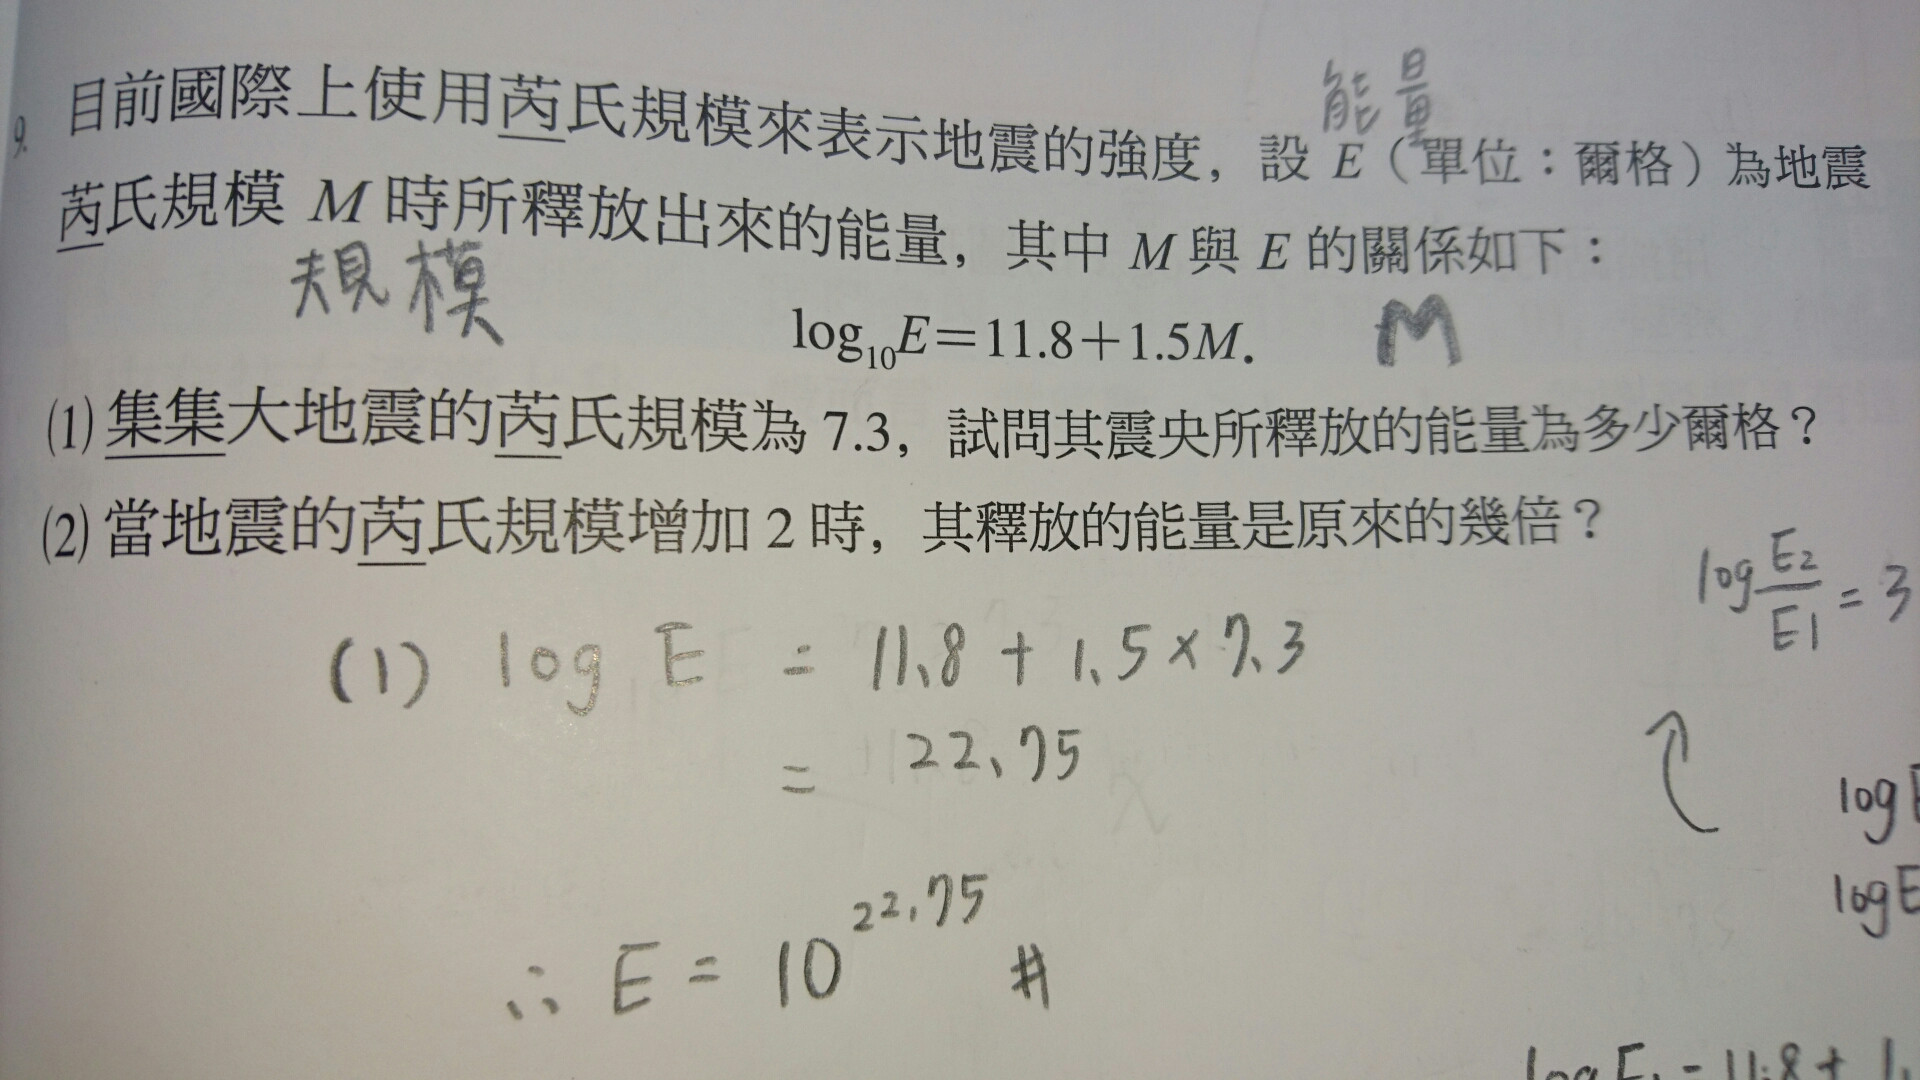 能量
9. 目前國際上使用芮氏規模來表示地震的強度，設 E（單位：爾格）為地震
芮氏規模 M 時所釋放出來的能量，其中 M 與 E 的關係如下：
規模
log₁₀E＝11.8＋1.5M.
M
(1) 集集大地震的芮氏規模為 7.3，試問其震央所釋放的能量為多少爾格？
(2) 當地震的芮氏規模增加 2 時，其釋放的能量是原來的幾倍？
log E2/E1 = 3
(1) log E = 11.8 + 1.5 × 7.3
= 22.75
log E
log E
∴ E = 10^22.75 #
log E₁ = 11.8 + 1.